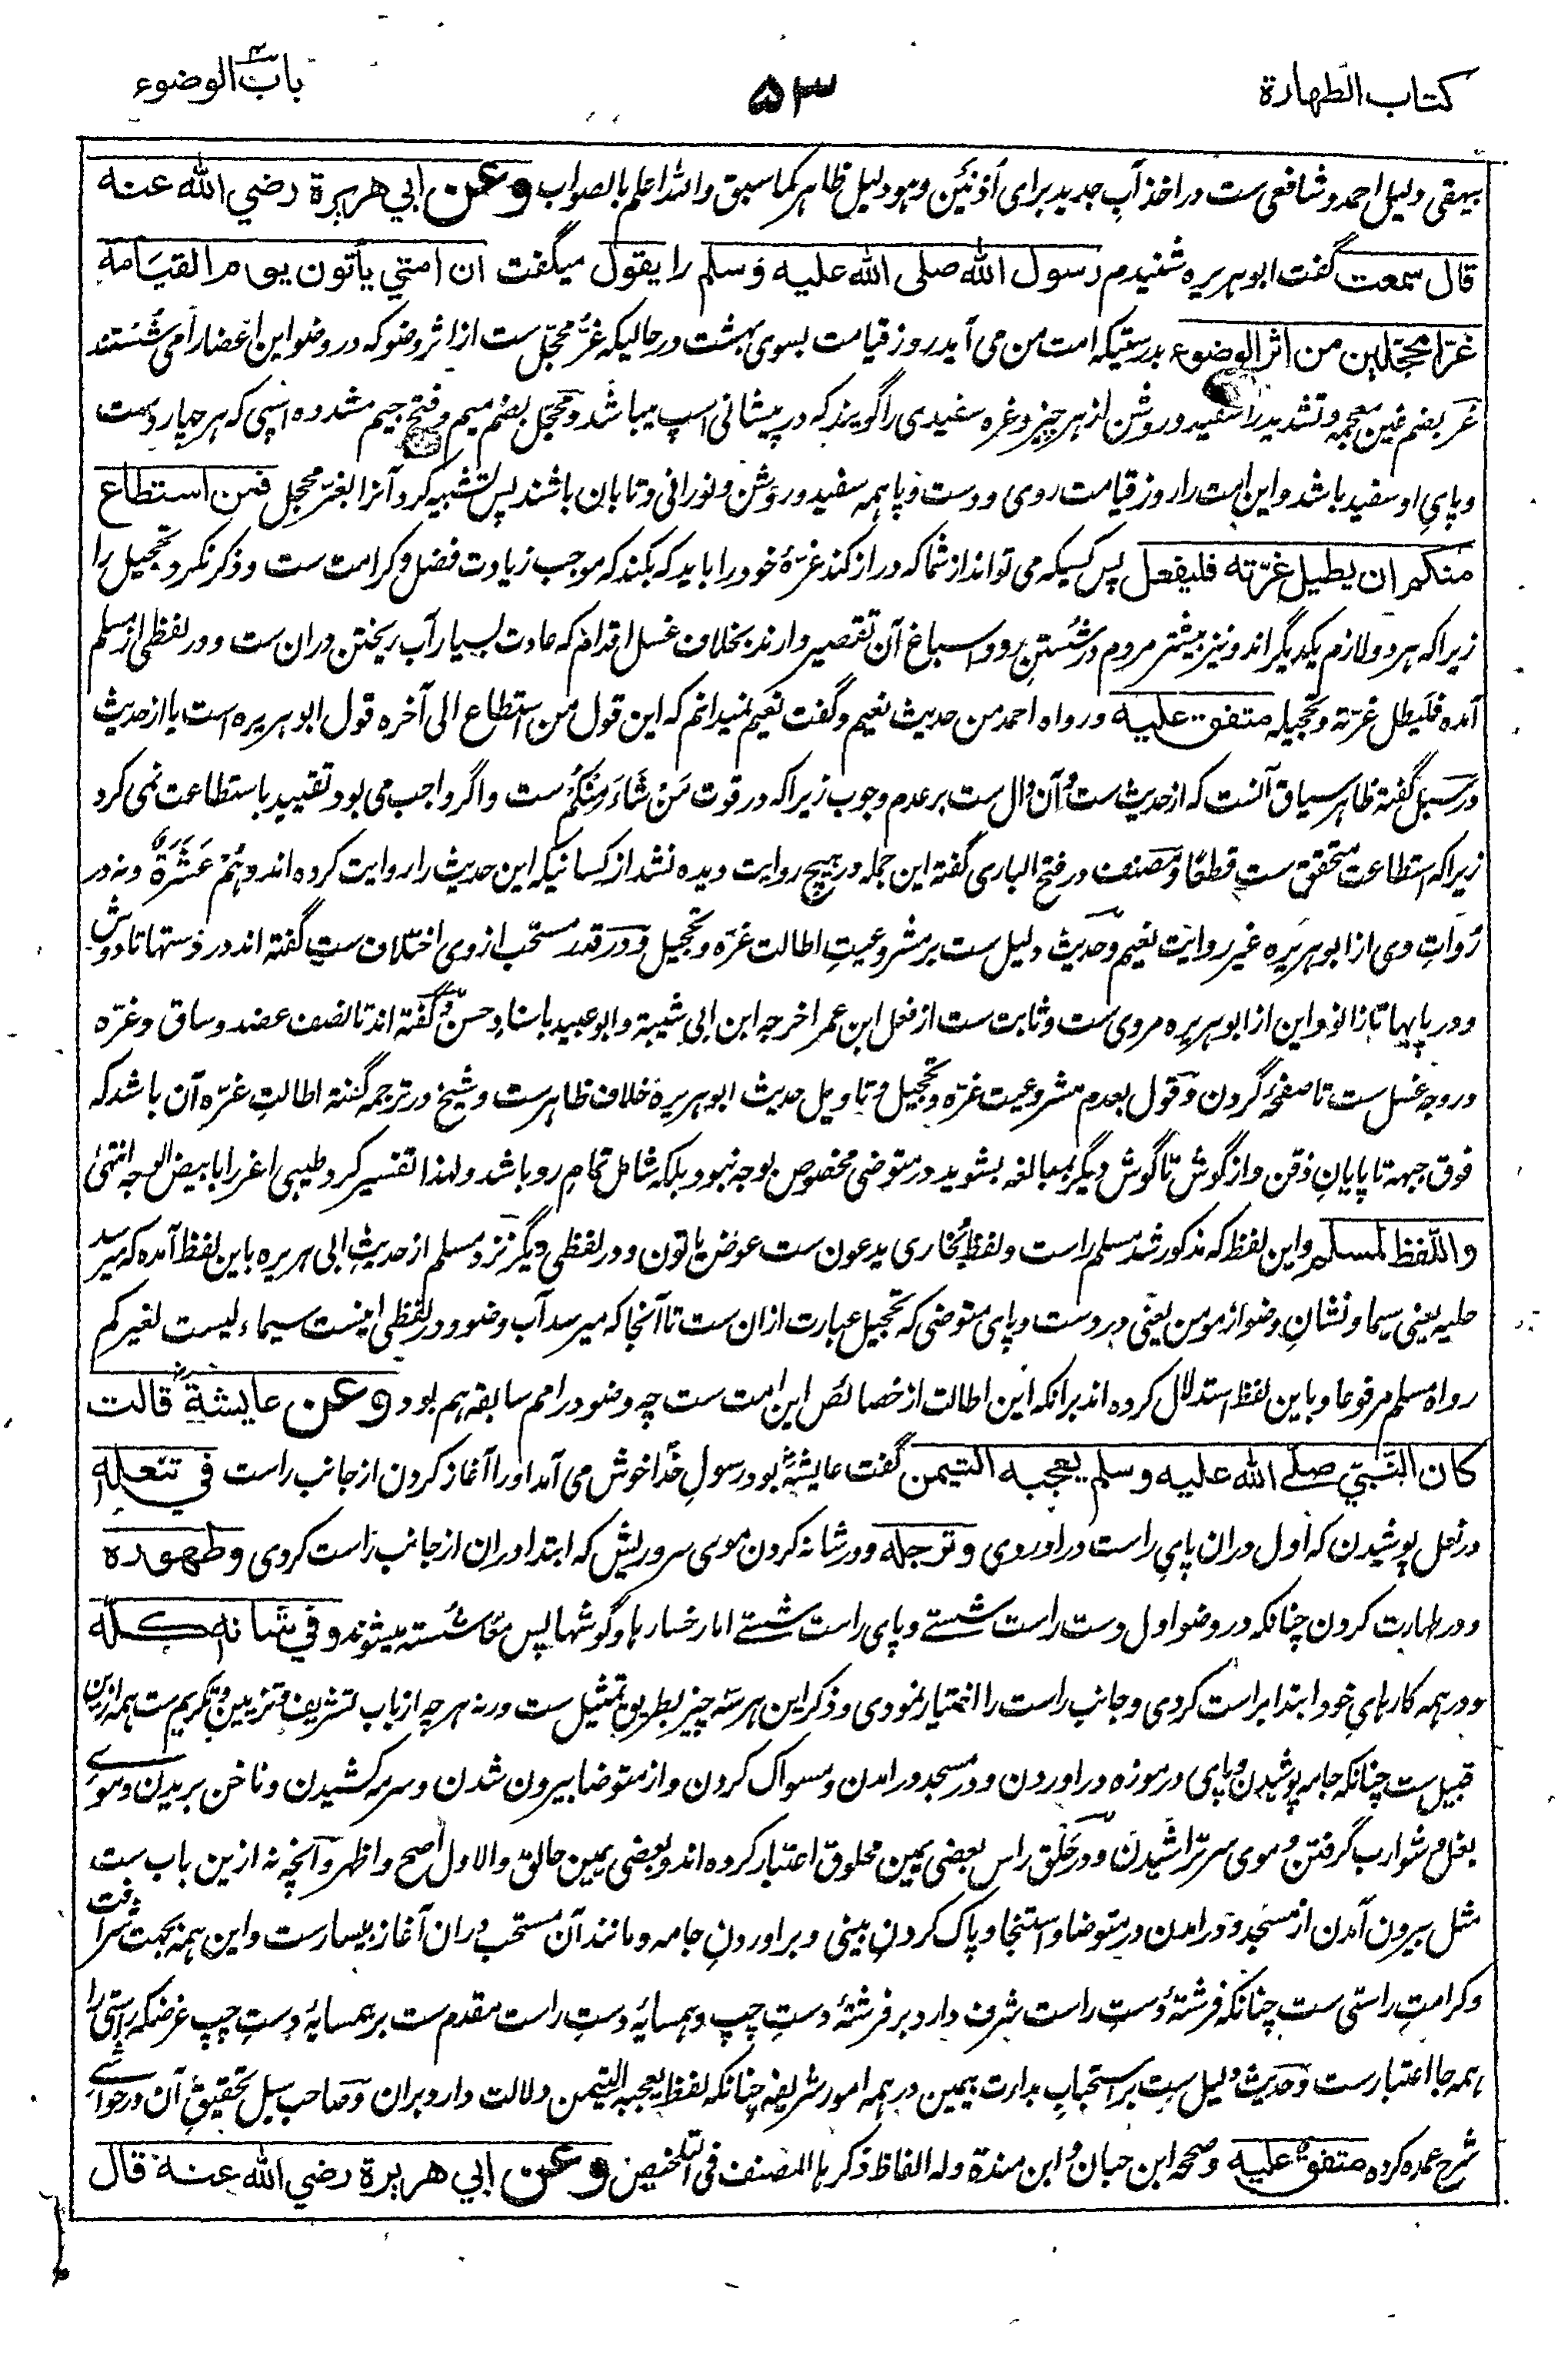 كتاب الطهارة
۵۳
باب الوضوء
بیهقی دلیل احمد و شافعی ست در اخذ آب جدید برای أذنین و هو دلیل ظاهر کما سبق والله اعلم بالصواب وعن ابي هريرة رضي الله عنه
قال سمعت گفت ابو هریره شنیدم رسول الله صلى الله عليه وسلم را يقول میگفت ان امتي يأتون يوم القيامة
غرا محجلين من اثر الوضوء بدرستیکه امت من می آید روز قیامت بسوی بهشت در حالیکه غر محجل ست از اثر وضو که در وضو این اعضا را می شستند
غر بضم غین معجمه و تشدید را سفید و روشن از هر چیز و غره سفیدی را گویند که در پیشانی اسپ میباشد و محجل بضم میم و فتح جیم مشدده اسپی که هر چهار دست
و پای او سفید باشد و این امت را روز قیامت روی و دست و پا همه سفید و روشن و نورانی و تابان باشند پس تشبیه کرد آنرا بغر محجل فمن استطاع
منكم ان يطيل غرته فليفعل پس کسیکه می تواند از شما که دراز کند غرهٔ خود را باید که بکند که موجب زیادت فضل و کرامت ست و ذکر نکرد تحجیل را
زیرا که هر دو لازم یکدیگر اند و نیز بیشتر مردم در شستن رو و اسباغ آن تقصیر دارند بخلاف غسل اقدام که عادت بسیار آب ریختن دران ست و در لفظی از مسلم
آمده فلیطل غرته وتحجیله متفق عليه ورواه احمد من حدیث نعیم و گفت نعیم نمیدانم که این قول من استطاع الی آخره قول ابو هریره است یا از حدیث
در سبل گفته ظاهر سیاق آنست که از حدیث ست و آن دال ست بر عدم وجوب زیرا که در قوت مَنْ شَاءَ مِنْکُمْ ست و اگر واجب می بود تقیید باستطاعت نمی کرد
زیرا که استطاعت متحقق ست قطعا و مصنف در فتح الباری گفته این جمله در هیچ روایت دیده نشد از کسانیکه این حدیث را روایت کرده اند و هُمْ عَشَرَةٌ و نه در
رُوات وی از ابو هریره غیر روایت نعیم و حدیث دلیل ست بر مشروعیت اطالت غره و تحجیل و در قدر مستحب ازوی اختلاف ست گفته اند در دستها تا دوش
و در پایها تا زانو و این از ابو هریره مروی ست و ثابت ست از فعل ابن عمر اخرجه ابن ابی شیبة و ابو عبید باسناد حسن و گفته اند تا نصف عضد و ساق و غره
در وجه غسل ست تا صفحهٔ گردن و قول بعدم مشروعیت غره و تحجیل و تاویل حدیث ابو هریره خلاف ظاهر ست و شیخ در ترجمه گفته اطالت غره آن باشد که
فوق جبهه تا پایان ذقن و از گوش تا گوش دیگر بمبالغه بشوید در متوضی مخصوص بوجه نبود بلکه شامل تمام رو باشد و لهذا تفسیر کرد طیبی اغر را بابیض الوجه انتهی
واللفظ لمسلم و این لفظ که مذکور شد مسلم راست و لفظ بخاری یدعون ست عوض یاتون و در لفظی دیگر نزد مسلم از حدیث ابی هریره باین لفظ آمده که میرسد
حلیه یعنی سیما و نشان وضو از مومن یعنی در دست و پای متوضی که تحجیل عبارت ازان ست تا آنجا که میرسد آب وضو و در لفظی اینست سیماء لیست لغیرکم
رواه مسلم مرفوعا و باین لفظ استدلال کرده اند برانکه این اطالت از خصائص این امت ست چه وضو در امم سابقه هم بود وعن عايشة قالت
كان النبي صلى الله عليه وسلم يعجبه التيمن گفت عایشه بود رسول خدا خوش می آمد او را آغاز کردن از جانب راست في تنعله
در نعل پوشیدن که اول دران پای راست در اوردی وترجله و در شانه کردن موی سر و ریش که ابتدا دران از جانب راست کردی وطهوره
و در طهارت کردن چنانکه در وضو اول دست راست شستے و پای راست شستے اما رخسارها و گوشها پس معا شسته میشوند وفي شانه كله
و در همه کارهای خود ابتدا براست کردی و جانب راست را اختیار نمودی و ذکر این هر سه چیز بطریق تمثیل ست ورنه هر چه از باب تشریف و تزیین و تکریم ست همه ازین
قبیل ست چنانکه جامه پوشیدن و پای در موزه در اوردن و در مسجد در امدن و مسواک کردن و از متوضا بیرون شدن و سرمه کشیدن و ناخن بریدن و موے
بغل و شوارب گرفتن و موی سر تراشیدن و در حلق راس بعضی یمین محلوق اعتبار کرده اند و بعضی یمین حالق والاول اصح واظهر و آنچه نه ازین باب ست
مثل بیرون آمدن از مسجد و در امدن در متوضا و استنجا و پاک کردن بینی و بر اوردن جامه و مانند آن مستحب دران آغاز بیسار ست و این همه بجهت شرافت
و کرامت راستی ست چنانکه فرشتهٔ دست راست شرف دارد بر فرشتهٔ دست چپ و همسایهٔ دست راست مقدم ست بر همسایهٔ دست چپ غرضکه راستی را
همه جا اعتبار ست و حدیث دلیل ست بر استحباب بداءت بیمین در همه امور شریفه چنانکه لفظ یعجبه التیمن دلالت دارد بران و صاحب سبل تحقیق آن در حواشے
شرح عمده کرده متفق عليه وصححه ابن حبان وابن مندة وله الفاظ ذکرها المصنف فی التلخیص وعن ابي هريرة رضي الله عنه قال